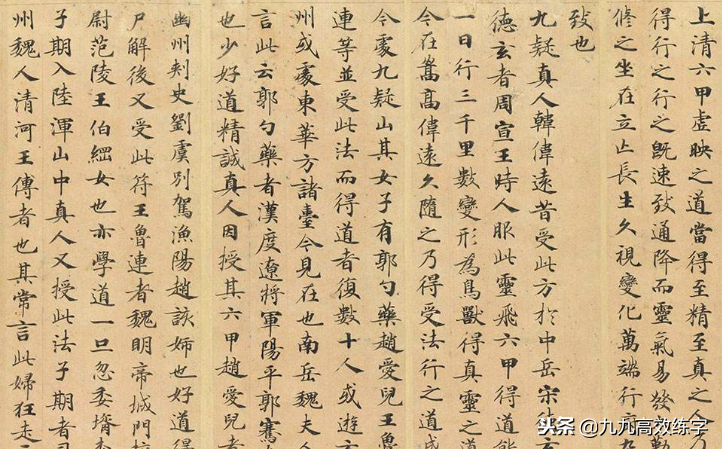 上清六甲虚映之道當得至精至真之人
得行之行之既速致通降而靈氣易發
脩之坐在立亡長生久視變化萬端行
致也
九疑真人韓偉遠昔受此方於中岳宋
德玄者周宣王時人服此靈飛六甲得道能
一日行三千里數變形為鳥獸得真靈之道
今在嵩高偉遠久隨之乃得受法行之道成
今處九疑山其女子有郭勺藥趙愛兒王魯
連等並受此法而得道者復數十人或遊
州或處東華方諸臺今見在也南岳魏夫人
言此云郭勺藥者漢度遼將軍陽平郭騫
也少好道精誠真人因授其六甲趙愛兒者
幽州刾史劉虞別駕漁陽趙該姊也好道得
尸解後又受此符王魯連者魏明帝城門校
尉范陵王伯綱女也亦學道一旦忽委壻李
子期入陸渾山中真人又授此法子期者司
州魏人清河王傳者也其常言此婦狂走
头条 @九九高效练字